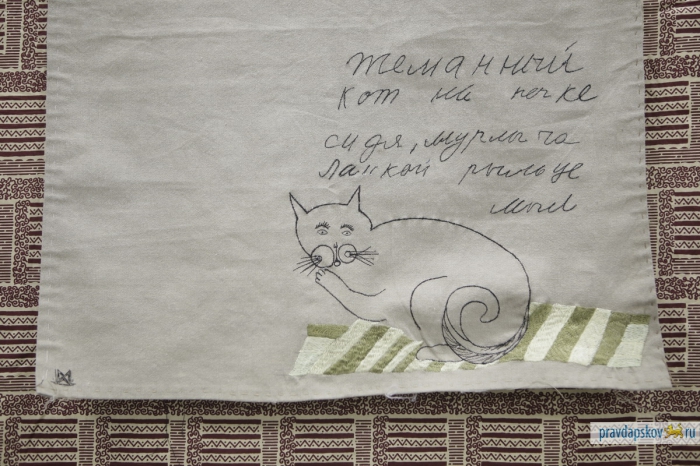 жеманный
кот на печке
сидя, мурлыча
лапкой рыльце
мыл
pravdapskov.ru